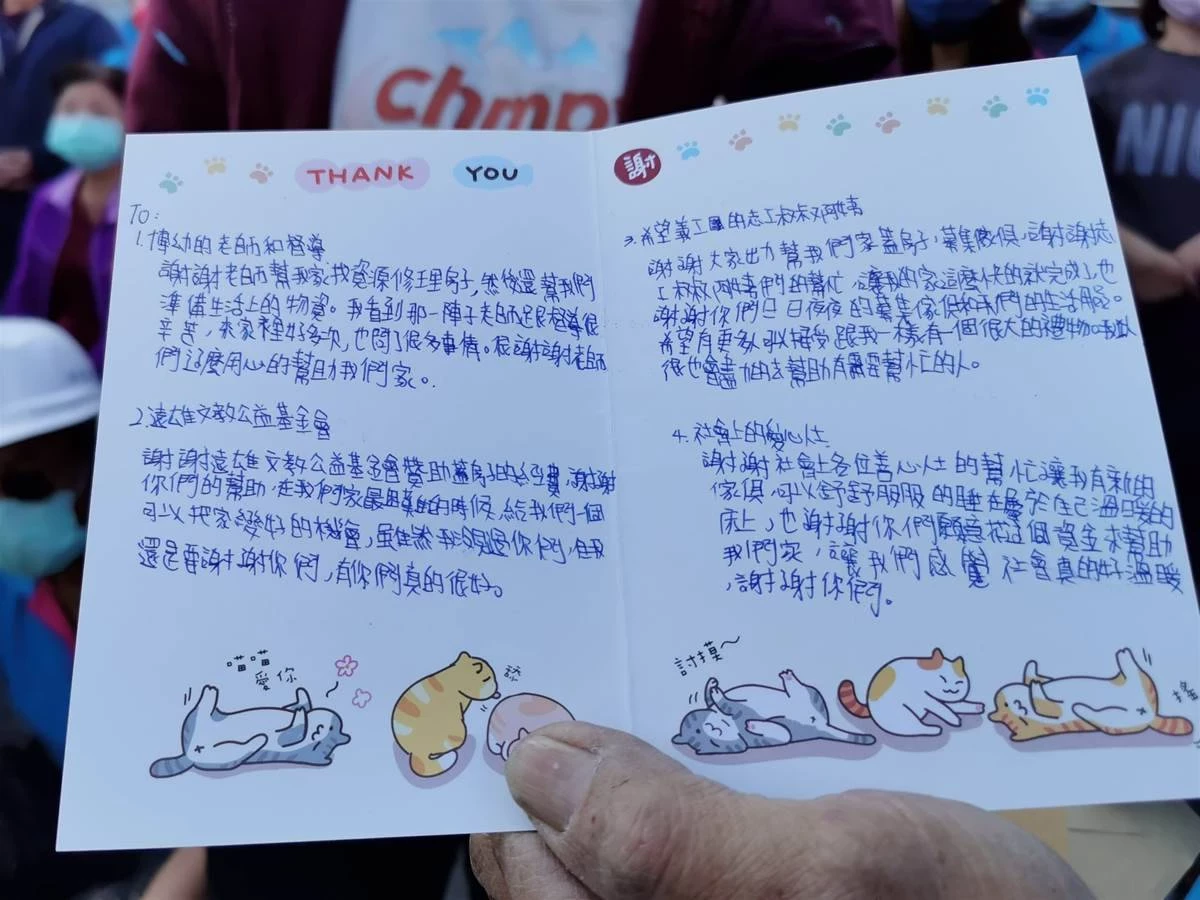 chmp
NIC
THANK YOU
謝
To:
1. 博幼的老師和督導
謝謝老師幫我家找資源修理房子,然後還幫我們
準備生活上的物資。我看到那一陣子老師跟督導很
辛苦,來家裡好多次,也問了很多事情。很謝謝老師
們這麼用心的幫助我們家。
2. 遠雄文教公益基金會
謝謝遠雄文教公益基金會贊助蓋房子的經費,謝謝
你們的幫助,在我們家最困難的時候,給我們一個
可以把家變好的機會,雖然我沒見過你們,但我
還是要謝謝你們,有你們真的很好。
3. 希望義工團的志工叔叔阿姨
謝謝大家出力幫我們家蓋房子,募集傢俱,謝謝志
工叔叔阿姨們的幫忙,讓我的家這麼快的就完成了,也
謝謝你們日日夜夜的募集傢俱和我們的生活用品。
希望有更多 可以接受跟我一樣有一個很大的禮物 我以
後也會盡力的去幫助有需要幫忙的人。
4. 社會上的愛心人士
謝謝社會上各位善心人士的幫忙讓我有新的
傢俱,可以舒舒服服的睡在屬於自己溫暖的
床上,也謝謝你們願意花這個資金來幫助
我們家,讓我們感覺社會真的好溫暖
,謝謝你們。
喵喵
愛你
討摸~